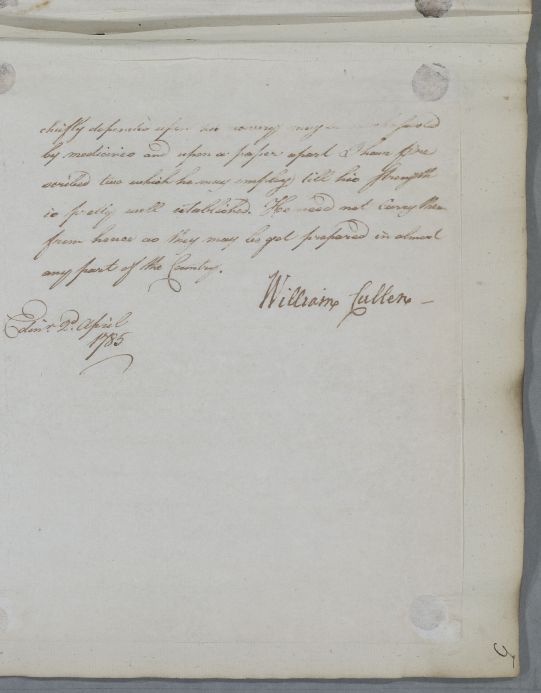 chiefly depends upon his nerves may be
by medicines and upon a paper apart I have pre
scribed two which he may employ till his strength
is pretty well established. He need not carry them
from hence as they may be got prepared in almost
any part of the Country.
William Cullen
Edinr. 2d. April
1785